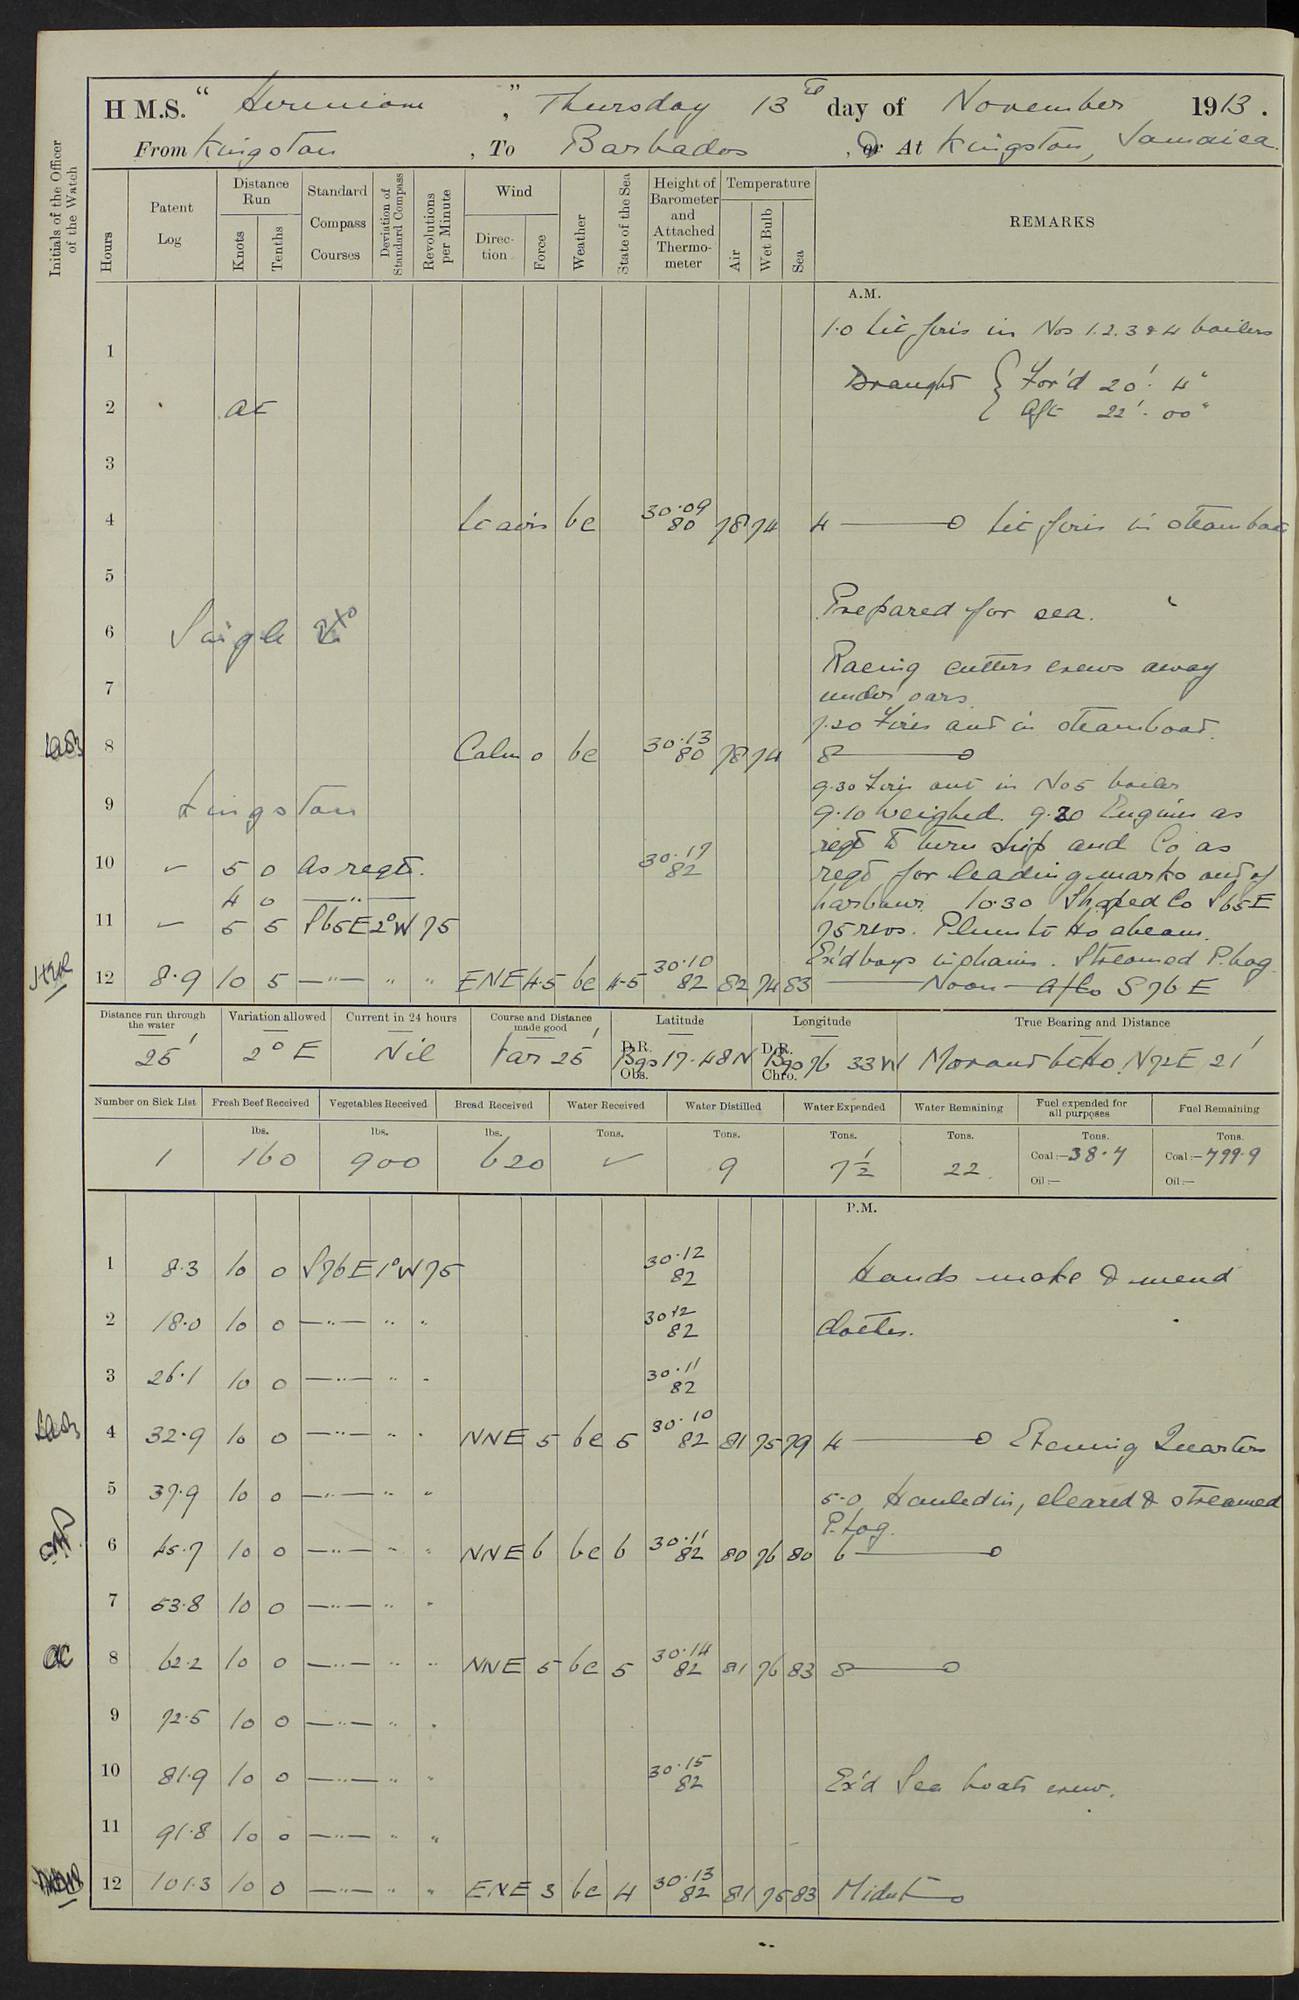 H.M.S. "Hermione", Thursday 13th day of November 1913.
From Kingston, To Barbados, & At Kingston, Jamaica.
Initials of the Officer of the Watch
Hours
Patent Log
Distance Run
Knots
Tenths
Standard Compass Courses
Deviation of Standard Compass
Revolutions per Minute
Wind
Direction
Force
Weather
State of the Sea
Height of Barometer and Attached Thermometer
Temperature
Air
Wet Bulb
Sea
REMARKS
A.M.
1.0 Lit fires in Nos 1.2.3 & 4 boilers
1
Draught { For'd 20'. 4"
Aft 22'. 00"
2 At
3
4 bc 30.09 80 78 74 4 ——o Lit fires in steamboat
5
Prepared for sea.
6 Single
Racing cutters crews away
7 under oars.
7.20 Fires out in steamboat.
8 Calm 0 bc 30.13 80 78 74 8 ——o
9.30 Fires out in No 5 boiler
9 Kingston 9.10 Weighed. 9.20 Engines as
reqd to turn ship and Co as
10 ✓ 5 0 As reqd. 30.17 82 reqd for leading marks out of
4 0 —"— harbour. 10.30 Shaped Co S65E
11 ✓ 5 5 S65E 2°W 75 75 revs. Plumb Pt Ho abeam.
Ex'd boys in chains. Streamed P. Log.
12 8.9 10 5 —"— " " ENE 4.5 bc 4-5 30.10 82 82 74 83 —— Noon — A/Co S76E
Distance run through the water
Variation allowed
Current in 24 hours
Course and Distance made good
Latitude
Longitude
True Bearing and Distance
25'
2° E
Nil
Var 25'
D.R. Bgs Obs. 17.48 N
D.R. Bgs Chro. 76 33 W
Morant Pt Lt Ho. N72E 21'
Number on Sick List
Fresh Beef Received
Vegetables Received
Bread Received
Water Received
Water Distilled
Water Expended
Water Remaining
Fuel expended for all purposes
Fuel Remaining
lbs. lbs. lbs. Tons. Tons. Tons. Tons. Tons. Tons.
1 160 900 620 ✓ 9 7½ 22 Coal:—38.7 Coal:—799.9
Oil:— Oil:—
P.M.
1 8.3 10 0 S76E 1°W 75 30.12 82 Hands make & mend
2 18.0 10 0 —"— " " 30.12 82 clothes.
3 26.1 10 0 —"— " " 30.11 82
4 32.9 10 0 —"— " " NNE 5 bc 5 30.10 82 81 75 79 4 ——o Evening Quarters
5 37.9 10 0 —"— " " 5.0 Hauled in, cleared & streamed
P. Log.
6 45.7 10 0 —"— " " NNE 6 bc 6 30.11 82 80 76 80 6 ——o
7 53.8 10 0 —"— " "
8 62.2 10 0 —"— " " NNE 5 bc 5 30.14 82 81 76 83 8 ——o
9 72.5 10 0 —"— " "
10 81.9 10 0 —"— " " 30.15 82 Ex'd Sea boats crew.
11 91.8 10 0 —"— " "
12 101.3 10 0 —"— " " ENE 3 bc 4 30.13 82 81 75 83 Midnt ——o